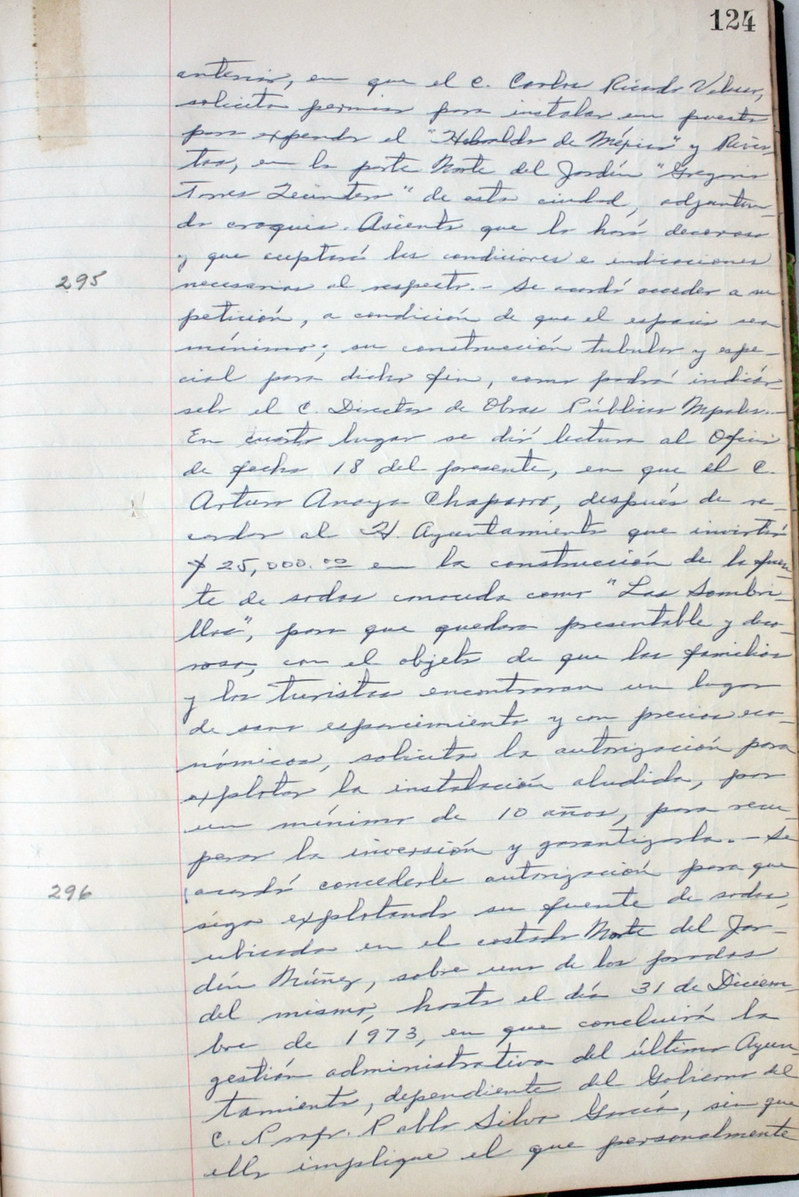 124
anterior, en que el C. Carlos Ricardo
solicita permiso para instalar un puesto
para expender el "Heraldo de México" y Revis-
tas, en la parte Norte del Jardín "Gregorio
Torres Quintero" de esta ciudad, adjuntan-
do croquis. Asienta que lo hará decoroso
y que aceptará las condiciones e indicaciones
295
necesarias al respecto.- Se acordó acceder a su
petición, a condición de que el espacio sea
mínimo; su construcción tubular y espe-
cial para dicho fin, como podrá indicár
selo el C. Director de Obras Públicas Mpales.-
En cuarto lugar se dió lectura al Oficio
de fecha 18 del presente, en que el C.
Arturo Anaya Chaparro, después de re-
cordar al H. Ayuntamiento que invirtió
$ 25,000.00 en la construcción de la fuen
te de sodas conocida como "Las Sombri-
llas", para que quedara presentable y deco-
rosa, con el objeto de que las familias
y los turistas encontraran un lugar
de sano esparcimiento y con precios eco-
nómicos, solicita la autorización para
explotar la instalación aludida, por
un mínimo de 10 años, para recu-
perar la inversión y garantizarla.- Se
296
acordó concederle autorización para que
siga explotando su fuente de sodas,
ubicada en el costado Norte del Jar-
dín Núñez, sobre uno de los prados
del mismo, hasta el día 31 de Diciem-
bre de 1973, en que concluirá la
gestión administrativa del último Ayun-
tamiento, dependiente del Gobierno del
C. Profr. Pablo Silva García, sin que
ello implique el que personalmente